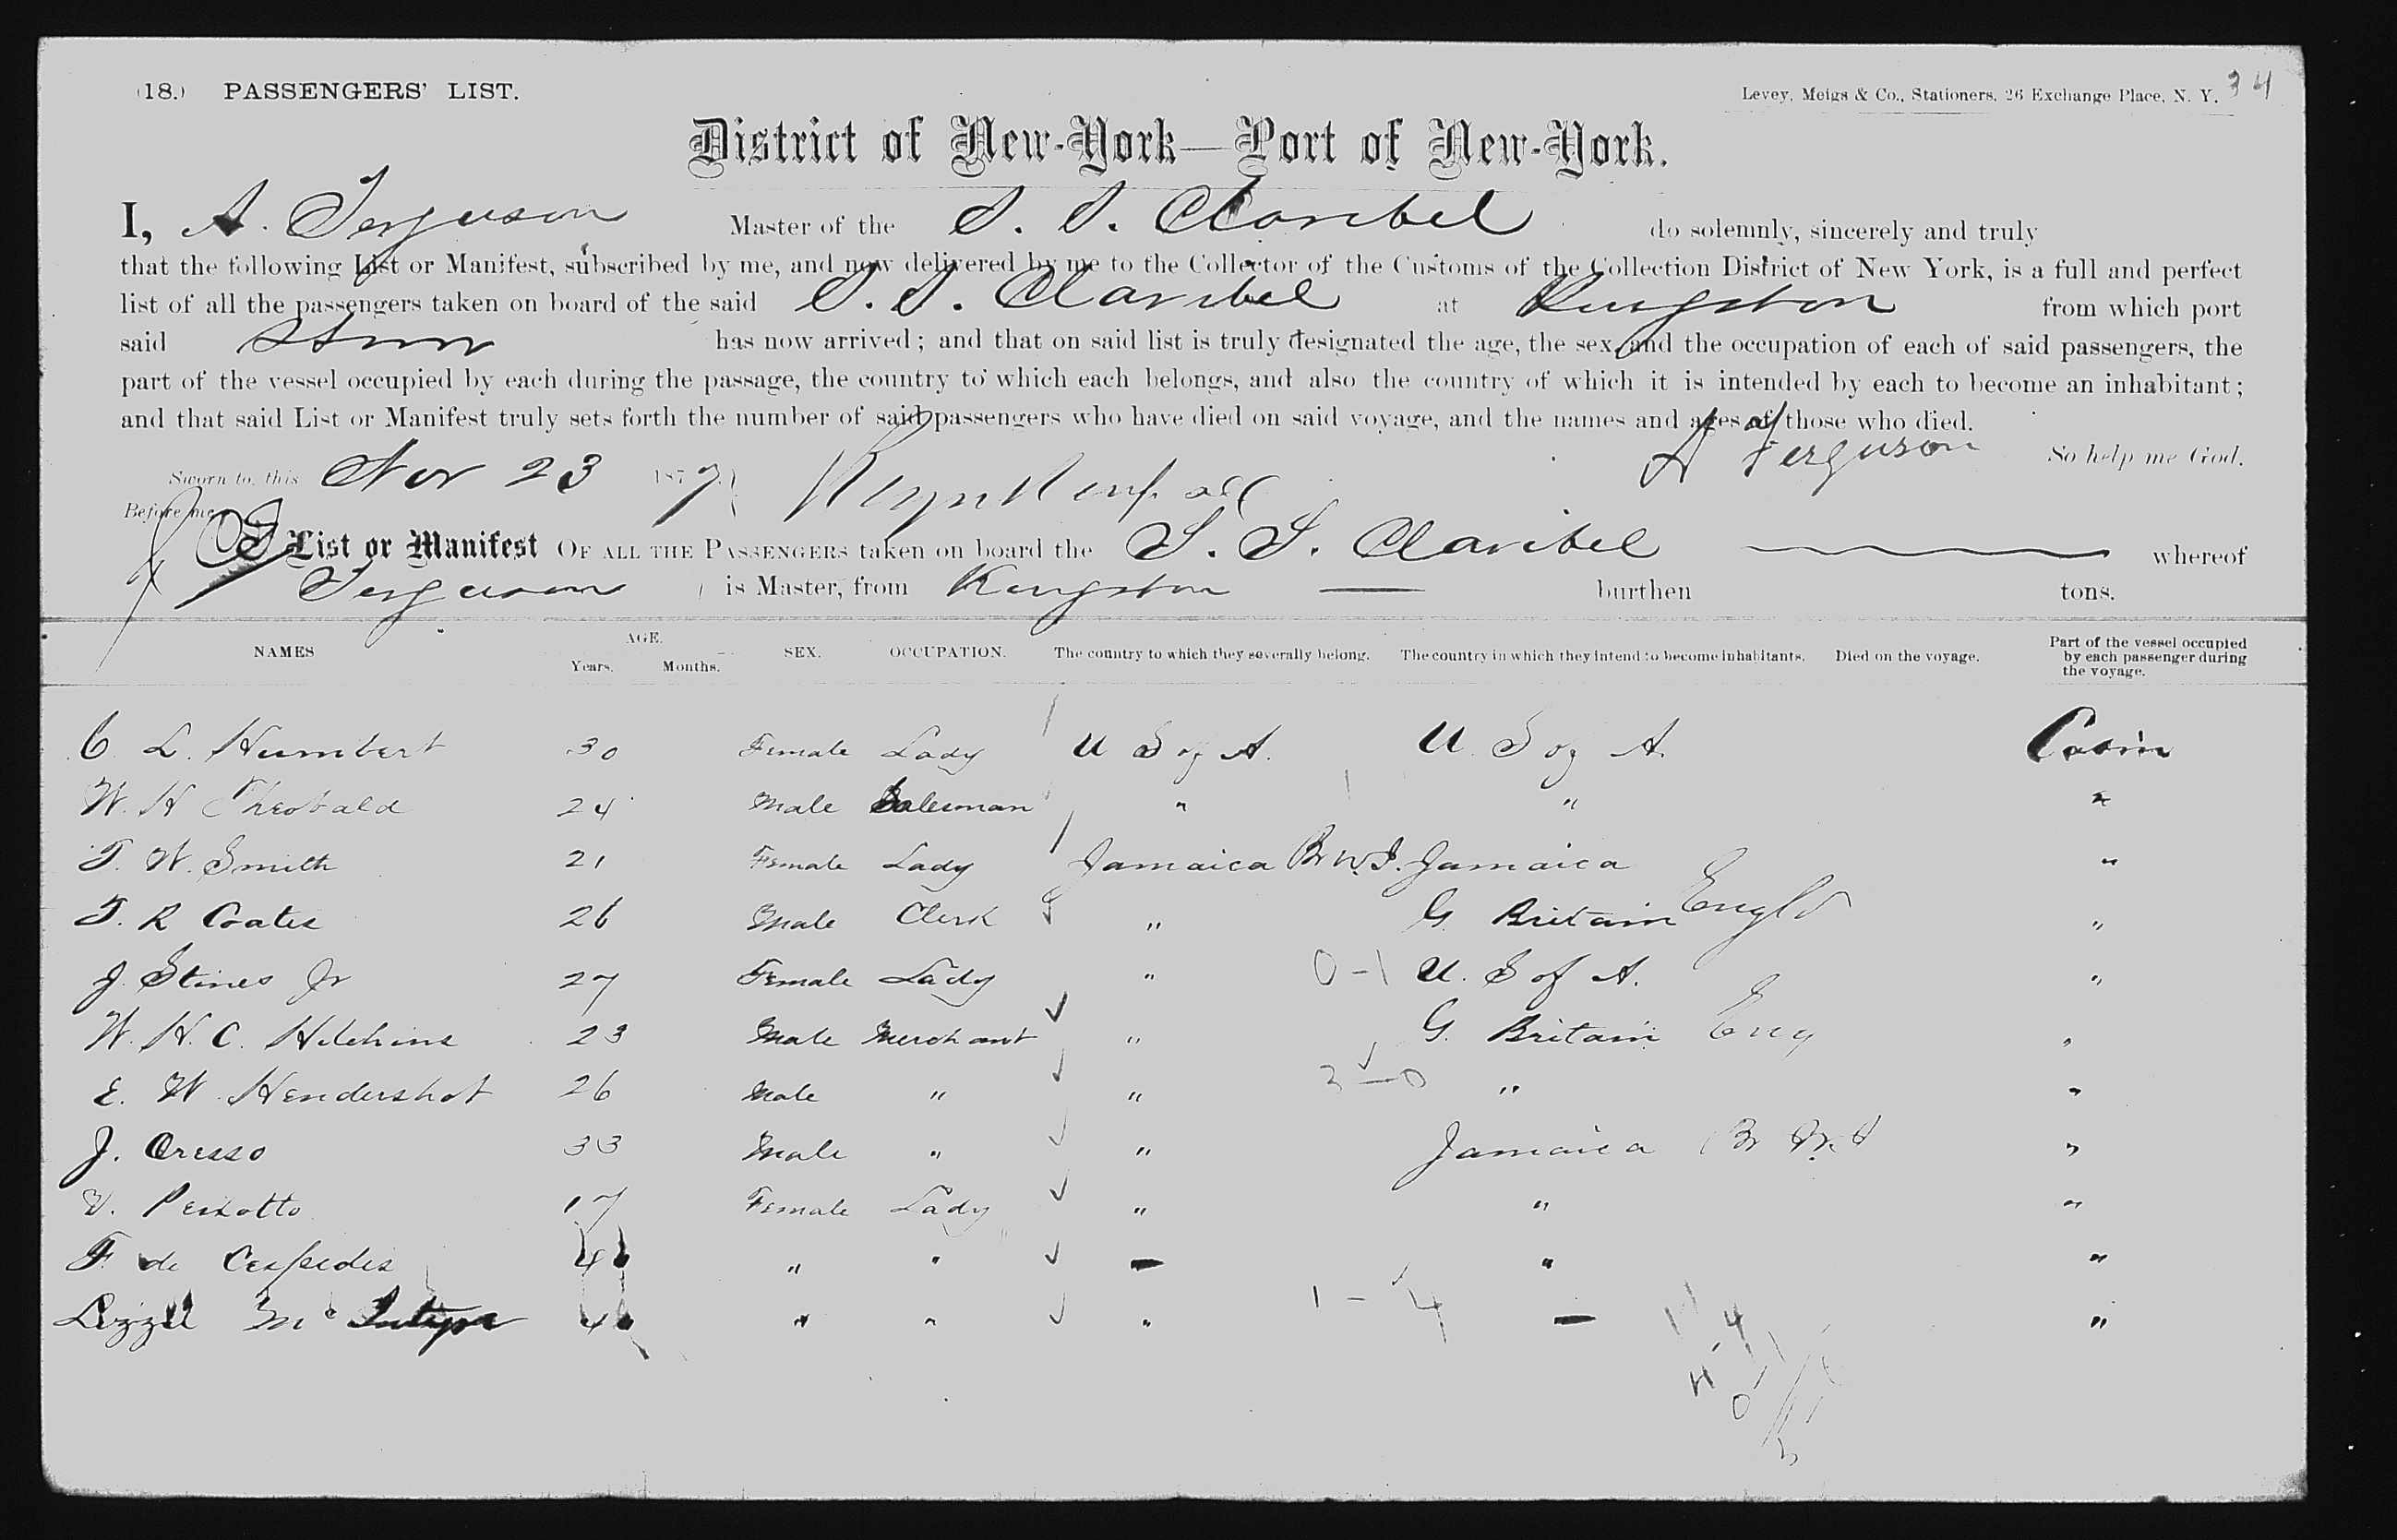 (18.) PASSENGERS' LIST. Levey, Meigs & Co., Stationers, 26 Exchange Place, N. Y. 34
District of New-York—Port of New-York.
I, A. Ferguson Master of the S. S. Claribel do solemnly, sincerely and truly
that the following List or Manifest, subscribed by me, and now delivered by me to the Collector of the Customs of the Collection District of New York, is a full and perfect
list of all the passengers taken on board of the said S. S. Claribel at Kingston from which port
said has now arrived; and that on said list is truly designated the age, the sex, and the occupation of each of said passengers, the
part of the vessel occupied by each during the passage, the country to which each belongs, and also the country of which it is intended by each to become an inhabitant;
and that said List or Manifest truly sets forth the number of said passengers who have died on said voyage, and the names and ages of those who died.
Sworn to, this Nov 23 1877 A Ferguson So help me God.
Before me,
List or Manifest OF ALL THE PASSENGERS taken on board the S. S. Claribel whereof
Ferguson is Master, from Kingston — burthen tons.
NAMES AGE. Years. Months. SEX. OCCUPATION. The country to which they severally belong. The country in which they intend to become inhabitants. Died on the voyage. Part of the vessel occupied by each passenger during the voyage.
C. L. Humbert 30 Female Lady U S of A. U. S of A. Cabin
W. H Theobald 24 Male Salesman " " "
T. W. Smith 21 Female Lady Jamaica Br W. I. Jamaica "
T. R Coates 26 Male Clerk " G. Britain Engld "
J. Stines Jr 27 Female Lady " 0-1 U. S of A. "
W. H. C. Hitchins 23 Male Merchant " G. Britain Eng "
E. W. Hendershot 26 Male " " 2-0 " "
J. Cresso 33 Male " " Jamaica Br W. I "
V. Peixotto 17 Female Lady " " "
F. de Cespedes " " — " "
Lizzie Mc " " " 1-4 — "